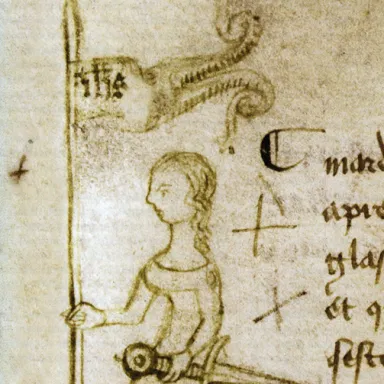 ihs
C mard
apre
glas
Et q
fest